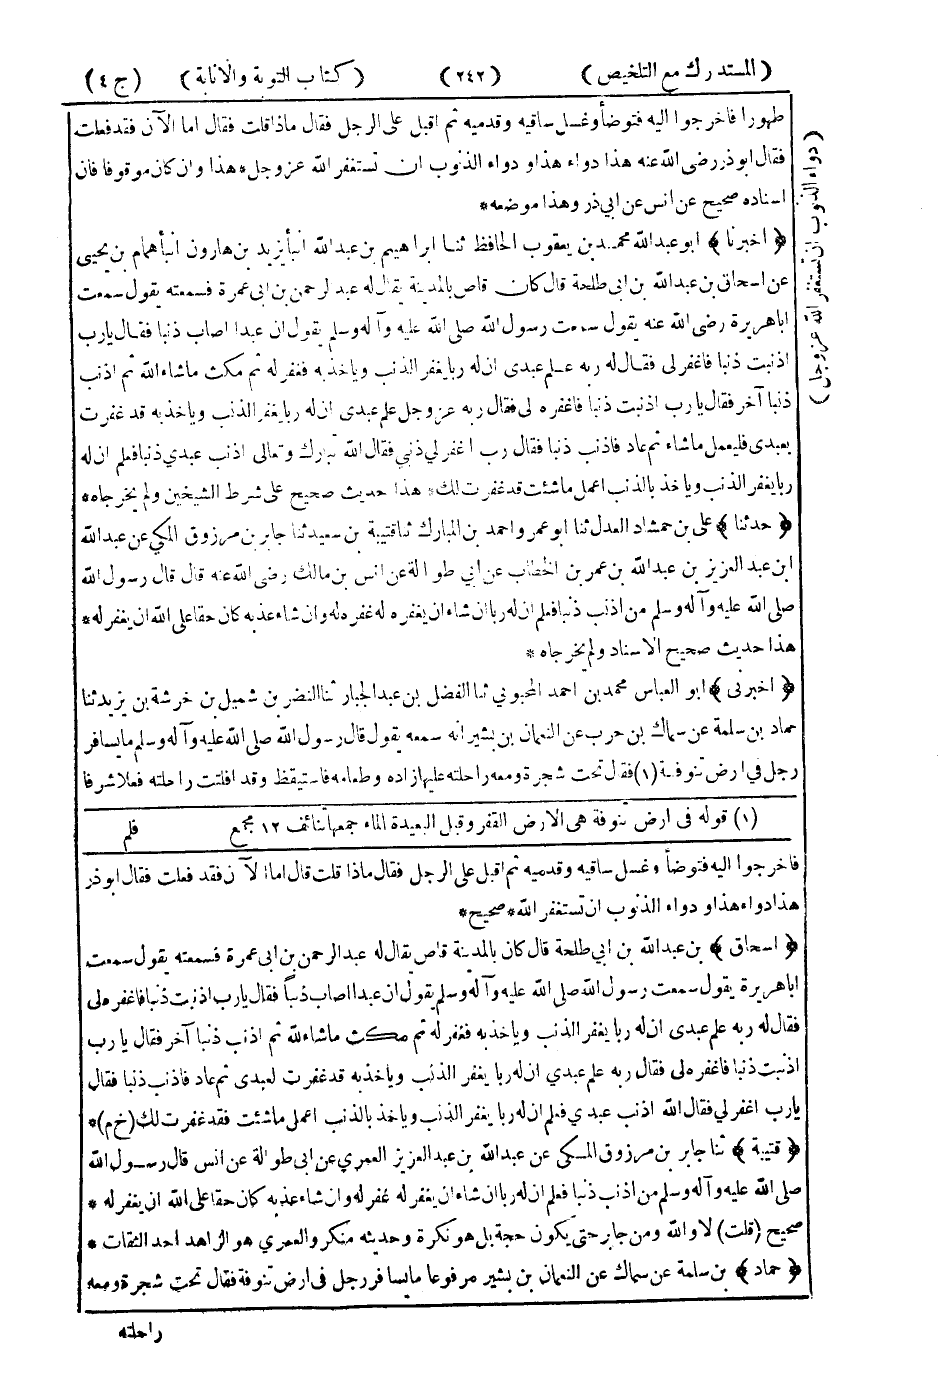 (المستدرك مع التلخيص) (٢٤٢) (كتاب التوبة والانابة) (ج ٤)
طهورا فاخرجوا اليه فتوضأ وغسل ساقيه وقدميه ثم اقبل على الرجل فقال ماذا قلت فقال اما الآن فقد فعلت
فقال ابوذر رضى الله عنه هذا دواء هذا ودواء الذنوب ان تستغفر الله عزوجل * هذا وان كان موقوفا فان
اسناده صحيح عن انس عن ابى ذر وهذا موضعه *
(دواء الذنوب ان تستغفر الله عزوجل)
﴿ اخبرنا ﴾ ابو عبدالله محمد بن يعقوب الحافظ ثنا ابراهيم بن عبدالله انبأ يزيد بن هارون انبأ همام بن يحيى
عن اسحاق بن عبدالله بن ابى طلحة قال كان قاص بالمدينة يقال له عبد الرحمن بن ابى عمرة فسمعته يقول سمعت
اباهريرة رضى الله عنه يقول سمعت رسول الله صلى الله عليه وآله وسلم يقول ان عبدا اصاب ذنبا فقال يارب
اذنبت ذنبا فاغفر لى فقال له ربه علم عبدى ان له ربا يغفر الذنب وياخذ به فغفر له ثم مكث ماشاء الله ثم اذنب
ذنبا آخر فقال يا رب اذنبت ذنبا فاغفره لى فقال ربه عزوجل علم عبدى ان له ربا يغفر الذنب وياخذ به قد غفرت
لعبدى فليعمل ماشاء ثم عاد فاذنب ذنبا فقال رب اغفر لي ذنبي فقال الله تبارك وتعالى اذنب عبدي ذنبا فعلم ان له
ربا يغفر الذنب وياخذ بالذنب اعمل ماشئت قد غفرت لك * هذا حديث صحيح على شرط الشيخين ولم يخرجاه *
﴿ حدثنا ﴾ على بن حمشاد العدل ثنا ابو عمرو احمد بن المبارك ثنا قتيبة بن سعيد ثنا جابر بن مرزوق المكي عن عبدالله
ابن عبد العزيز بن عبدالله بن عمر بن الخطاب عن ابي طوالة عن انس بن مالك رضى الله عنه قال قال رسول الله
صلى الله عليه وآله وسلم من اذنب ذنبا فعلم ان له ربا ان شاء ان يغفره له غفره له وان شاء عذبه كان حقا على الله ان يغفر له *
هذا حديث صحيح الاسناد ولم يخرجاه *
﴿ اخبرنى ﴾ ابو العباس محمد بن احمد المحبوبي ثنا الفضل بن عبد الجبار ثنا النضر بن شميل بن خرشة بن يزيد ثنا
حماد بن سلمة عن سماك بن حرب عن النعمان بن بشير انه سمعه يقول قال رسول الله صلى الله عليه وآله وسلم ما يسافر
رجل في ارض تنوفة (١) فقال تحت شجرة ومعه راحلته عليها زاده وطعامه فاستيقظ وقد افلتت راحلته فعلا شرفا
(١) قوله فى ارض تنوفة هى الارض القفر وقيل البعيدة الماء جمعها تنائف ١٢ مجمع فلم
فاخرجوا اليه فتوضأ وغسل ساقيه وقدميه ثم اقبل على الرجل فقال ماذا قلت قال اما الآن فقد فعلت فقال ابوذر
هذا دواء هذا ودواء الذنوب ان تستغفر الله * صحيح *
﴿ اسحاق ﴾ بن عبدالله بن ابي طلحة قال كان بالمدينة قاص يقال له عبد الرحمن بن ابى عمرة فسمعته يقول سمعت
اباهريرة يقول سمعت رسول الله صلى الله عليه وآله وسلم يقول ان عبدا اصاب ذنبا فقال يارب اذنبت ذنبا فاغفره لى
فقال له ربه علم عبدى ان له ربا يغفر الذنب وياخذ به فغفر له ثم مكث ماشاء الله ثم اذنب ذنبا آخر فقال يا رب
اذنبت ذنبا فاغفره لى فقال ربه علم عبدي ان له ربا يغفر الذنب وياخذ به قد غفرت لعبدى ثم عاد فاذنب ذنبا فقال
يارب اغفر لي فقال الله اذنب عبدي فعلم ان له ربا يغفر الذنب وياخذ بالذنب اعملى ماشئت فقد غفرت لك (خ م) *
﴿ قتيبة ﴾ ثنا جابر بن مرزوق المكي عن عبدالله بن عبد العزيز العمري عن ابى طوالة عن انس قال رسول الله
صلى الله عليه وآله وسلم من اذنب ذنبا فعلم ان له ربا ان شاء ان يغفر له غفر له وان شاء عذبه كان حقا على الله ان يغفر له *
صحيح (قلت) لا والله ومن جابر حتى يكون حجة بل هو نكرة وحديثه منكر والعمري هو الزاهد احد الثقات *
﴿ حماد ﴾ بن سلمة عن سماك عن النعمان بن بشير مرفوعا ما يسافر رجل فى ارض تنوفة فقال تحت شجرة ومعه
راحلته